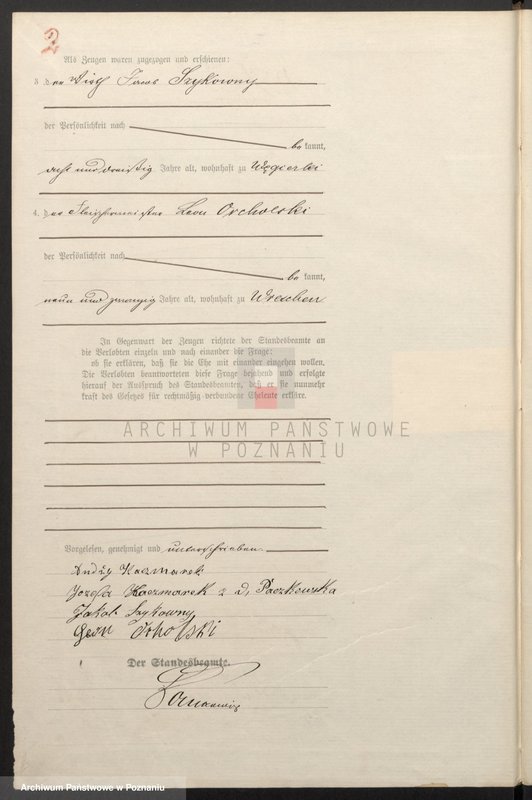 2
Als Zeugen waren zugezogen und erschienen:
3. der Wirth Jacob Szykowny
der Persönlichkeit nach
bekannt,
acht und dreißig Jahre alt, wohnhaft zu Węgierki
4. der Fleischermeister Leon Orcholski
der Persönlichkeit nach
bekannt,
neun und zwanzig Jahre alt, wohnhaft zu Wreschen
In Gegenwart der Zeugen richtete der Standesbeamte an
die Verlobten einzeln und nach einander die Frage:
ob sie erklären, daß sie die Ehe mit einander eingehen wollen.
Die Verlobten beantworteten diese Frage bejahend und erfolgte
hierauf der Ausspruch des Standesbeamten, daß er sie nunmehr
kraft des Gesetzes für rechtmäßig verbundene Eheleute erkläre.
ARCHIWUM PAŃSTWOWE
W POZNANIU
Vorgelesen, genehmigt und unterschrieben.
Kaczmarek
Kaczmarek z d. Paczkowska
Jakob Szykowny
Orholski
Der Standesbeamte.
Archiwum Państwowe w Poznaniu